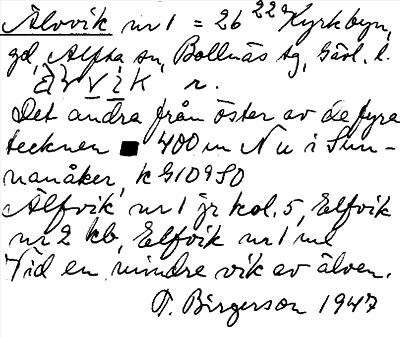 Älvvik nr 1 = 26²² Kyrkbyn,
gd, Alfta sn, Bollnäs tg, Gävl. l.
n.
Det andra från öster av de fyra
tecknen ■ 400 m N u i Sun-
nanåker, k G109 SO
Älfvik nr 1 jr kol. 5, Elfvik
nr 2 kb, Elfvik nr 1 ml
Vid en mindre vik av älven.
T. Birgerson 1947